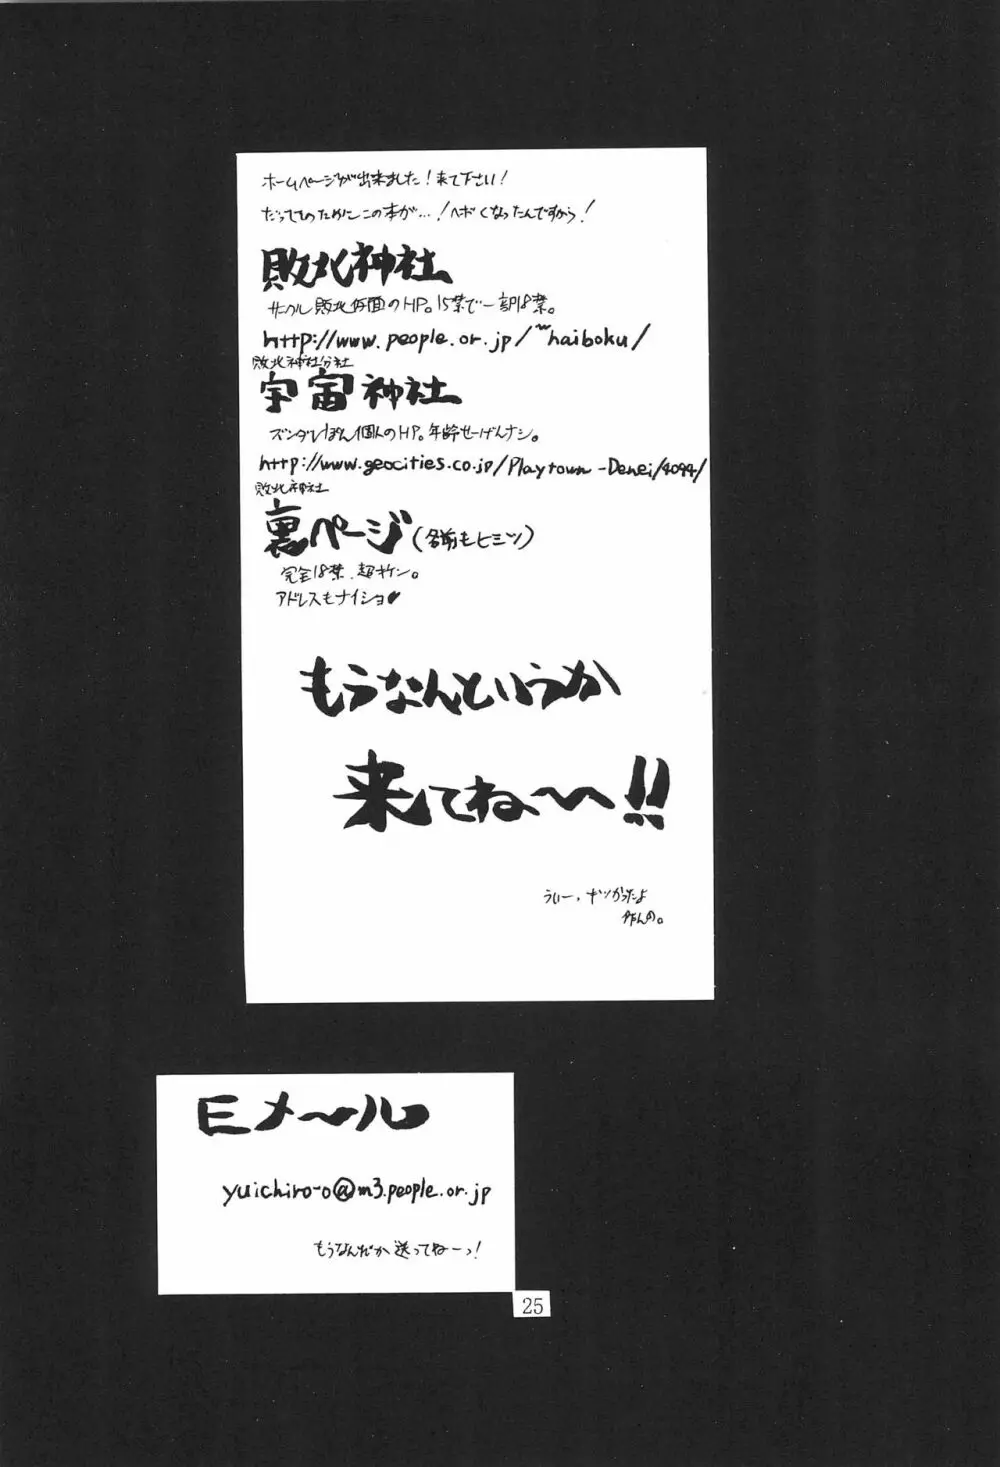 ホームページが出来ました!来て下さい!
だってそのためにこの本が…!ヘボくなったんですから!
敗北神社
サークル敗北仮面のHP。15禁で一部18禁。
http://www.people.or.jp/~haiboku/
敗北神社分社
宇宙神社
ズンダレぽん個人のHP。年齢せーげんナシ。
http://www.geocities.co.jp/Playtown-Denei/4094/
敗北神社
裏ページ(名前もヒミツ)
完全18禁、超キケン。
アドレスもナイショ♥
もうなんというか
来てね〜〜!!
うぃー、キツかったよ
作んの。
Eメ〜ル
yuichiro-o@m3.people.or.jp
もうなんだか送ってねーっ!
25